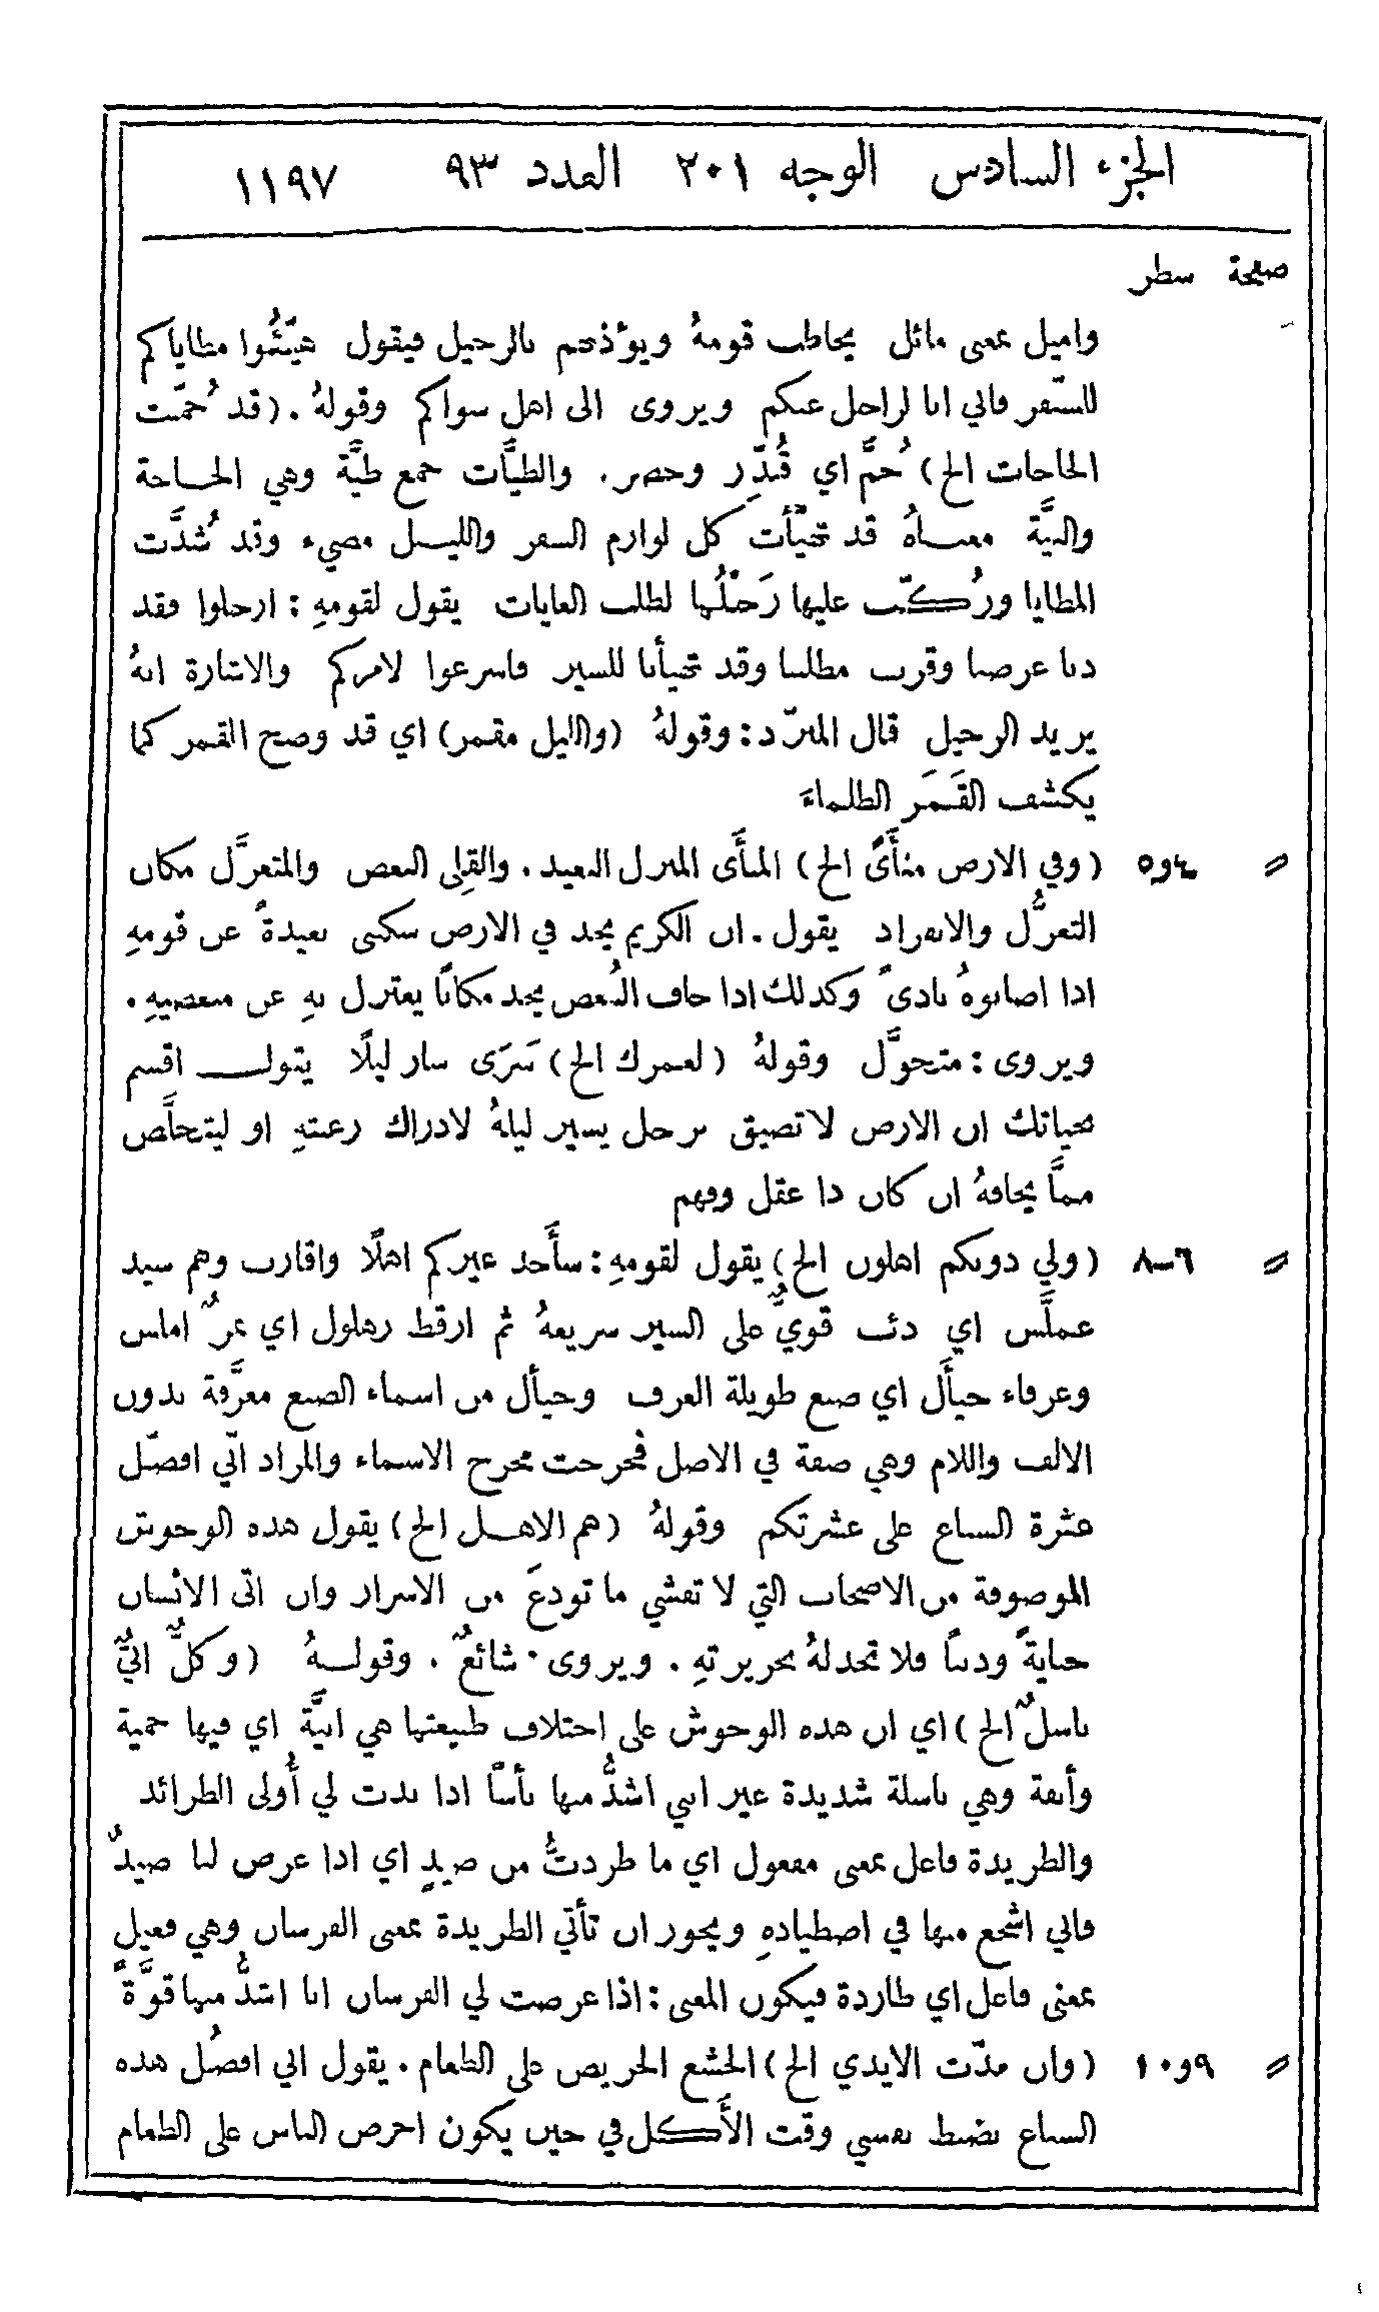 الجزء السادس الوجه ٢٠١ العدد ٩٣ ١١٩٧
صفحة سطر
واميل بمعنى مائل يخاطب قومهُ ويؤذنهم بالرحيل فيقول هيّئُوا مطاياكم
للسّفر فاني انا لراحل عنكم ويروى الى اهل سواكم وقولهُ. (قد حُمّت
الحاجات الخ) حُمَّ اي قُدِّر وحضر. والطيَّات جمع طيَّة وهي الحاجة
والنيَّة معناهُ قد تهيَّأَت كل لوازم السفر والليل مضيء وقد شُدَّت
المطايا ورُكّب عليها رَحْلُها لطلب الغايات يقول لقومهِ: ارحلوا فقد
دنا غرضنا وقرب مطلبنا وقد تهيأنا للسير فاسرعوا لامركم والاشارة انهُ
يريد الرحيل قال المبرّد: وقولهُ (والليل مقمر) اي قد وضح القمر كما
يكشف القَمَر الظلماءَ
〃 ٤و٥ (وفي الارض منأًى الخ) المنأَى المنزل البعيد. والقِلى البغض والمتعزَّل مكان
التعزُّل والانفراد يقول. ان الكريم يجد في الارض سكنى بعيدةً عن قومهِ
اذا اصابوهُ باذىً وكذلك اذا خاف البُغض يجد مكانًا يعتزل بهِ عن مبغضيهِ.
ويروى: متحوَّل وقولهُ (لعمرك الخ) سَرَى سار ليلًا يقول اقسم
بحياتك ان الارض لا تضيق برجل يسير ليلهُ لادراك رغبتهِ او ليتخلَّص
ممَّا يخافهُ ان كان ذا عقل وفهم
〃 ٦-٨ (ولي دونكم اهلون الخ) يقول لقومهِ: سأَجد غيركم اهلًا واقارب وهم سيد
عملَّس اي ذئب قويٌّ على السير سريعهُ ثم ارقط زهلول اي نمرٌ املس
وعرفاء جيأَل اي ضبع طويلة العرف وجيأل من اسماء الضبع معرَّفة بدون
الالف واللام وهي صفة في الاصل فخرجت مخرج الاسماء والمراد انّي افضّل
عشرة السباع على عشرتكم وقولهُ (هم الاهل الخ) يقول هذه الوحوش
الموصوفة من الاصحاب التي لا تفشي ما تودعَ من الاسرار وان اتى الانسان
جنايةً وذنبًا فلا تخذلهُ بجريرتهِ. ويروى· شائعٌ. وقولهُ (وكلٌّ ابيٌّ
باسلٌ الخ) اي ان هذه الوحوش على اختلاف طبيعتها هي ابيَّة اي فيها حمية
وأنفة وهي باسلة شديدة غير انني اشدُّ منها بأسًا اذا بدت لي أُولى الطرائد
والطريدة فاعل بمعنى مفعول اي ما طردتُّ من صيدٍ اي اذا عرض لنا صيدٌ
فاني اشجع منها في اصطيادهِ ويجوز ان تأتي الطريدة بمعنى الفرسان وهي فعيل
بمعنى فاعل اي طاردة فيكون المعنى: اذا عرضت لي الفرسان انا اشدُّ منها قوَّةً
〃 ٩و١٠ (وان مدّت الايدي الخ) الجشع الحريص على الطعام. يقول اني افضُل هذه
السباع بضبط نفسي وقت الأَكل في حين يكون احرص الناس على الطعام